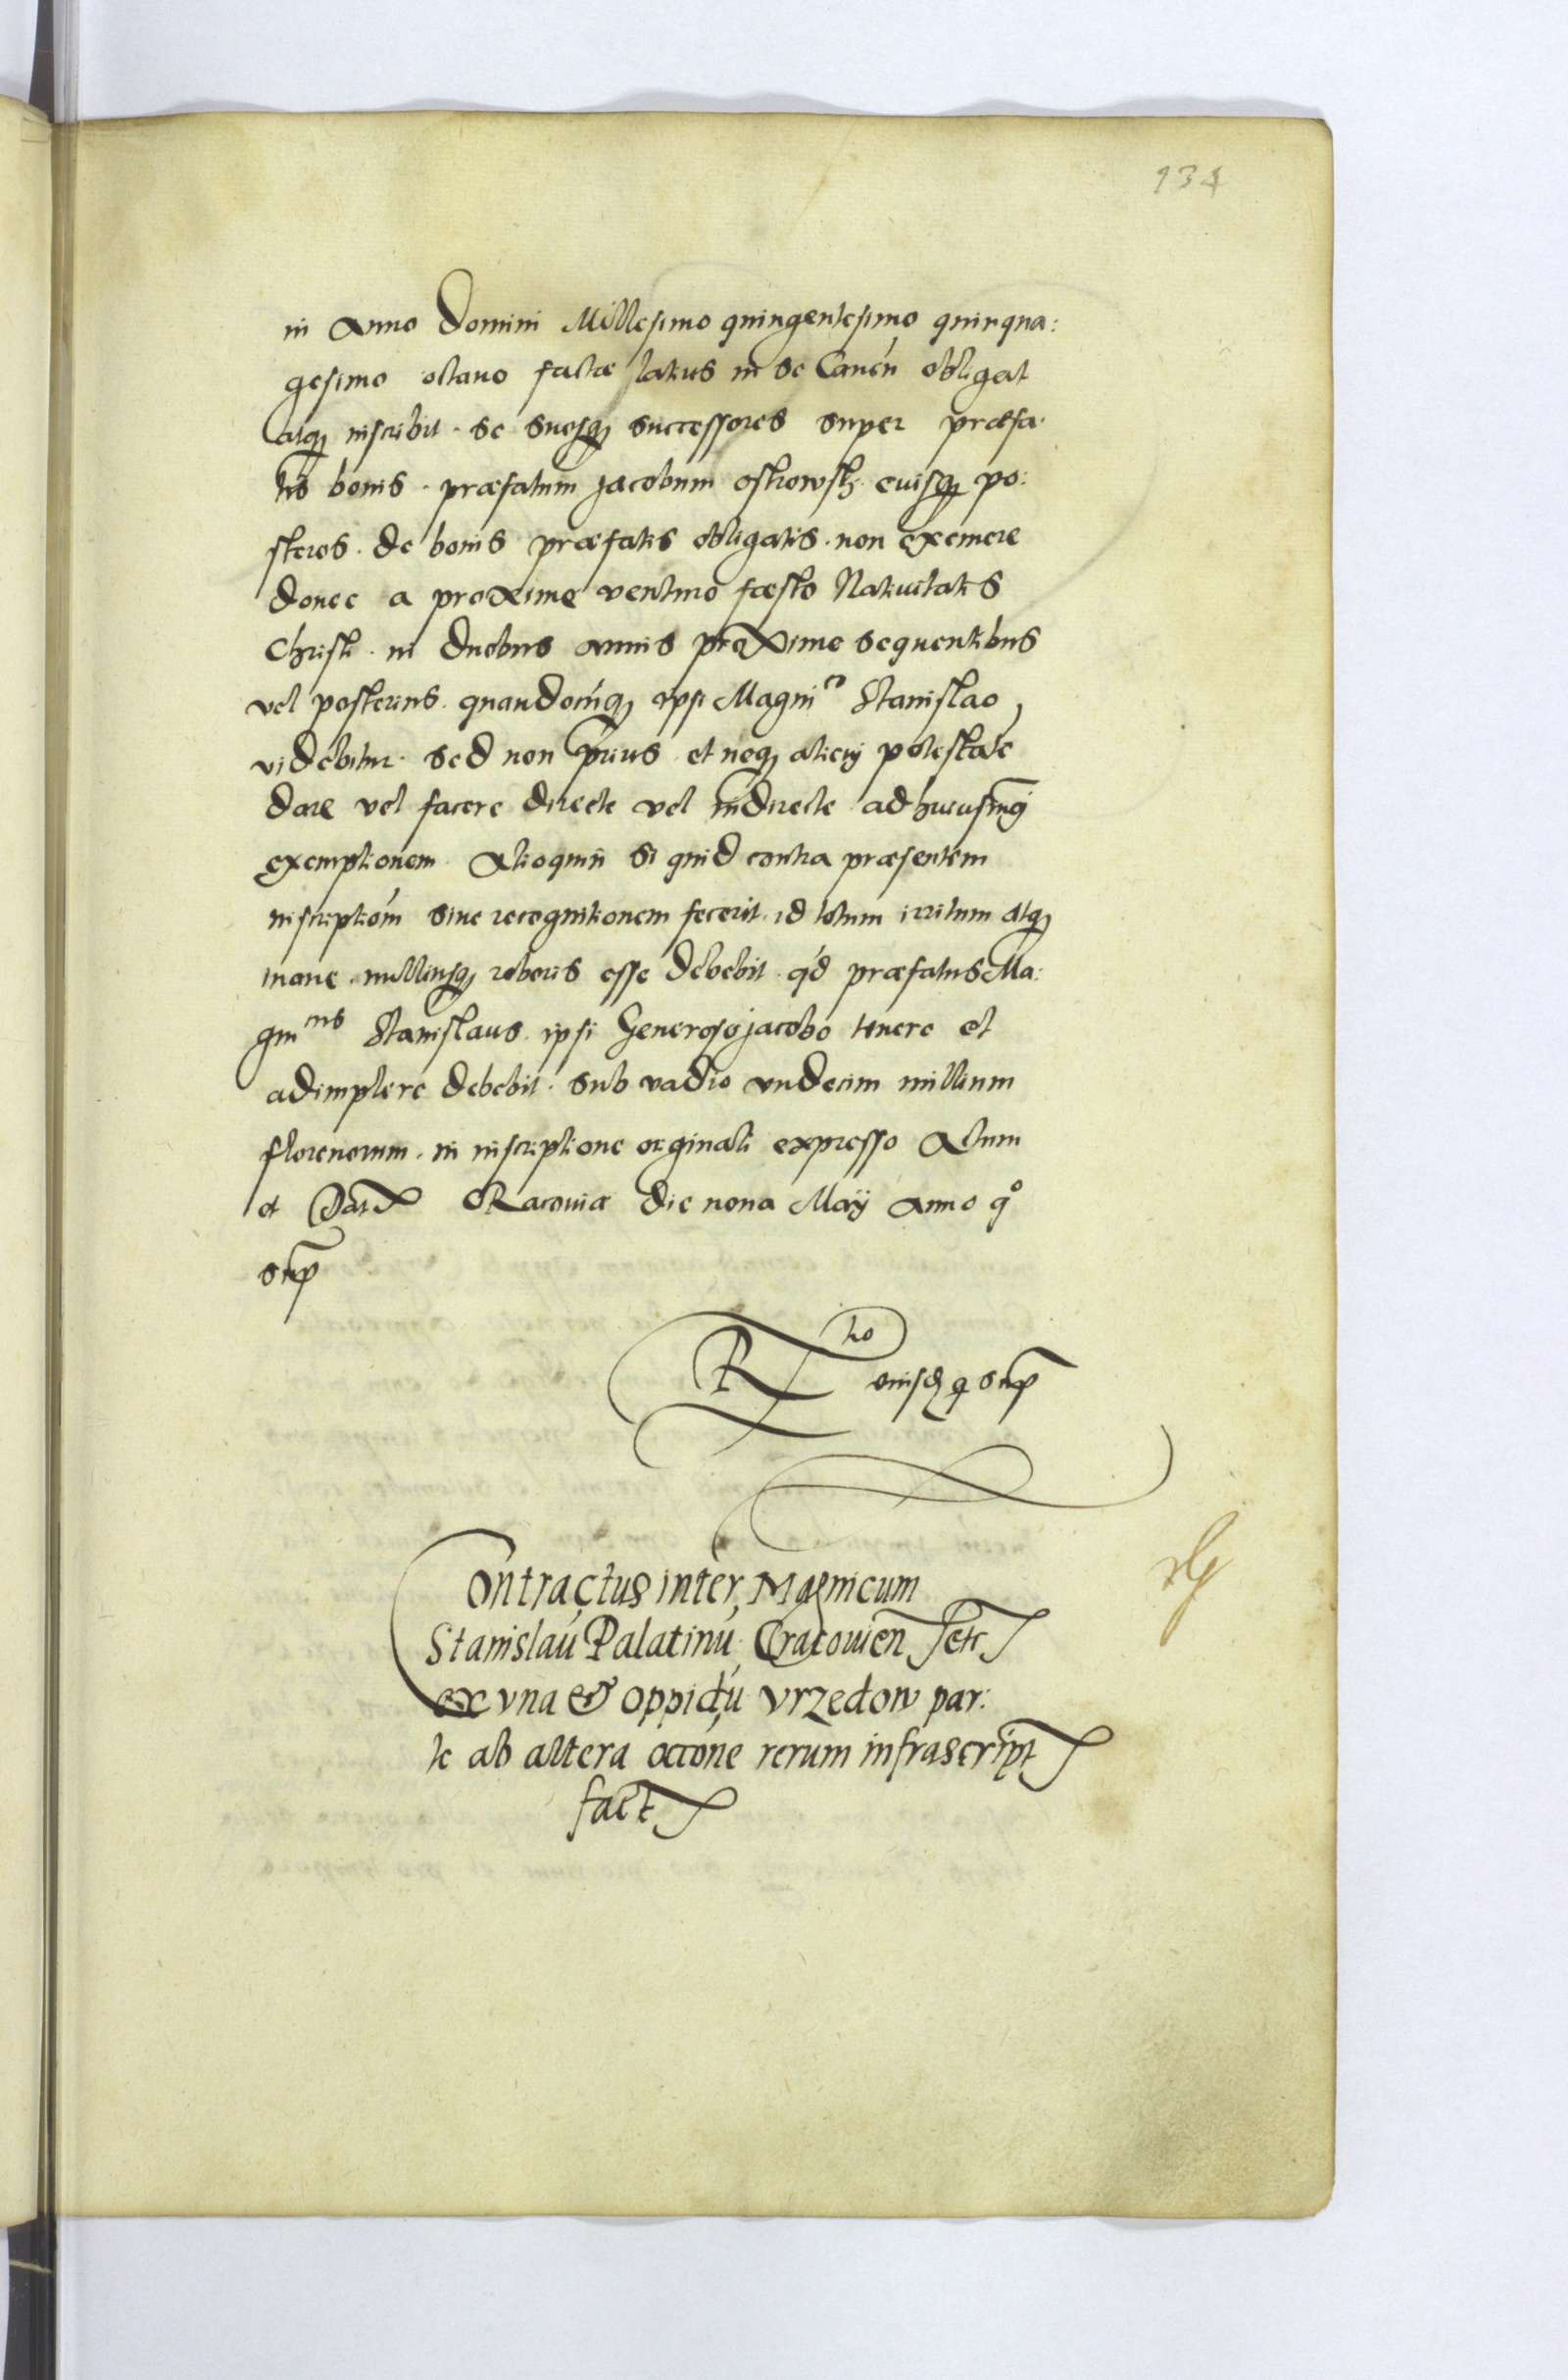 134
in Anno Domini Millesimo quingentesimo quinqua:
gesimo octauo factæ latius in se Canen̄ obligat
atq₃ inscribit. se suosq₃ successores super præfa.
tis bonis. præfatum Jacobum ostrowsk̨. euisq₃ po:
steros. de bonis præfatis obligatis. non exemere
donec a proxime venturo fæsto Natiuitatis
Christi. in duobus annis proxime sequentibus
vel posterius. quandocúq₃ ipsi Magnico Stanislao
videbitur. sed non prius et neq₃ alicuj potestate
dare vel facere directe vel indirecte ad huiusmōj
exemptionem Alioquin si quid contra præsentem
inscriptióm siue recognitionem fecerit. id totum irritum atq₃
inane. nulliusq₃ roboris esse debebit. qd́ præfatus Ma:
gnicus Stanislaus. ipsi Generoso Jacobo tenere et
adimplere debebit. sub vadio vndecim millium
florenorum. in inscriptione orginali expresso Actum
et Dat Racouiæ die nona Maÿ Anno qo
sup̄
R to euisd̨ q sup̄
Contractus inter Magnicum
Stanislaú Palatinú Cracouien̄ etc
ex vna & oppidú Vrzedow par:
te ab altera accóne rerum infrascript
fact